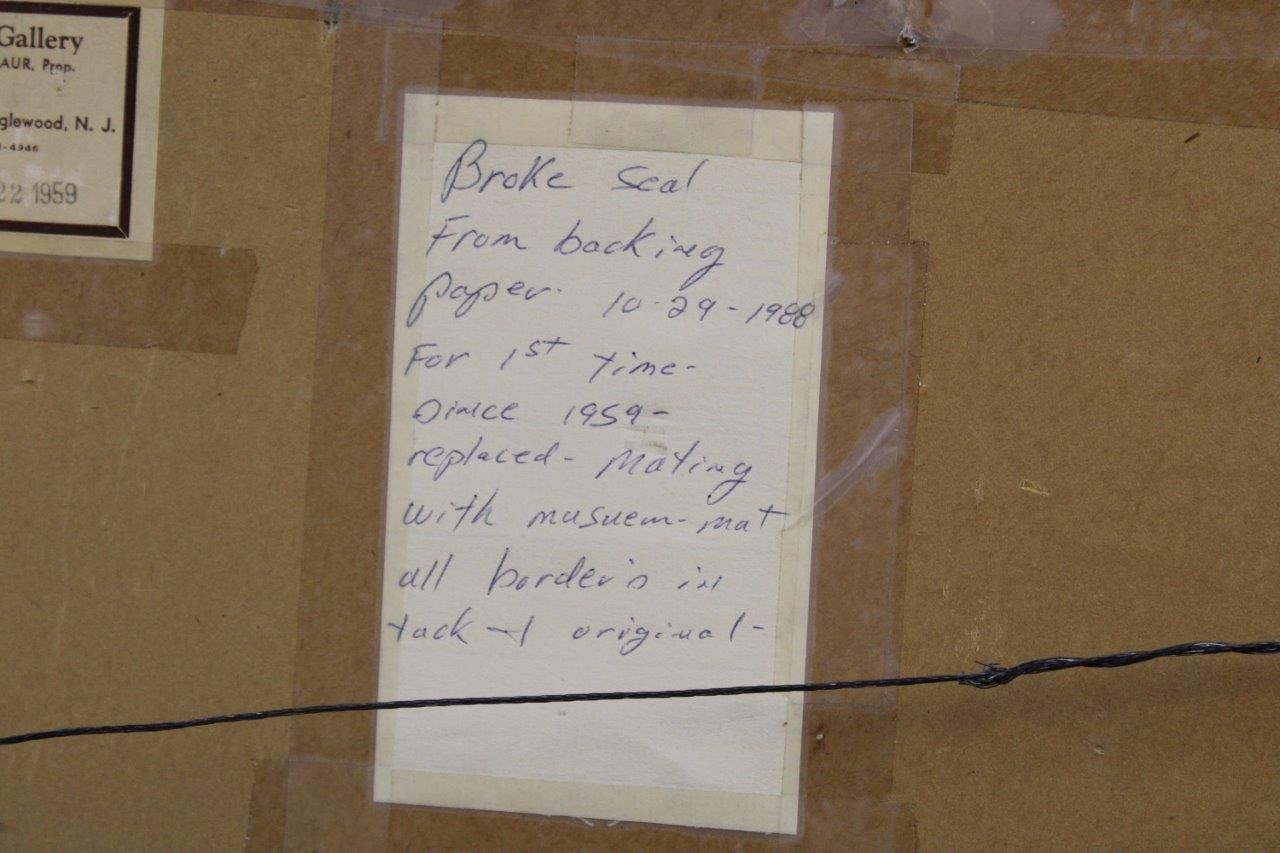 Gallery
AUR, Prop.
glewood, N. J.
-4946
22 1959
Broke Seal
From backing
paper. 10-29-1988
For 1st time-
Since 1959-
replaced- Mating
with musuem-mat
all border's in
tack + original-